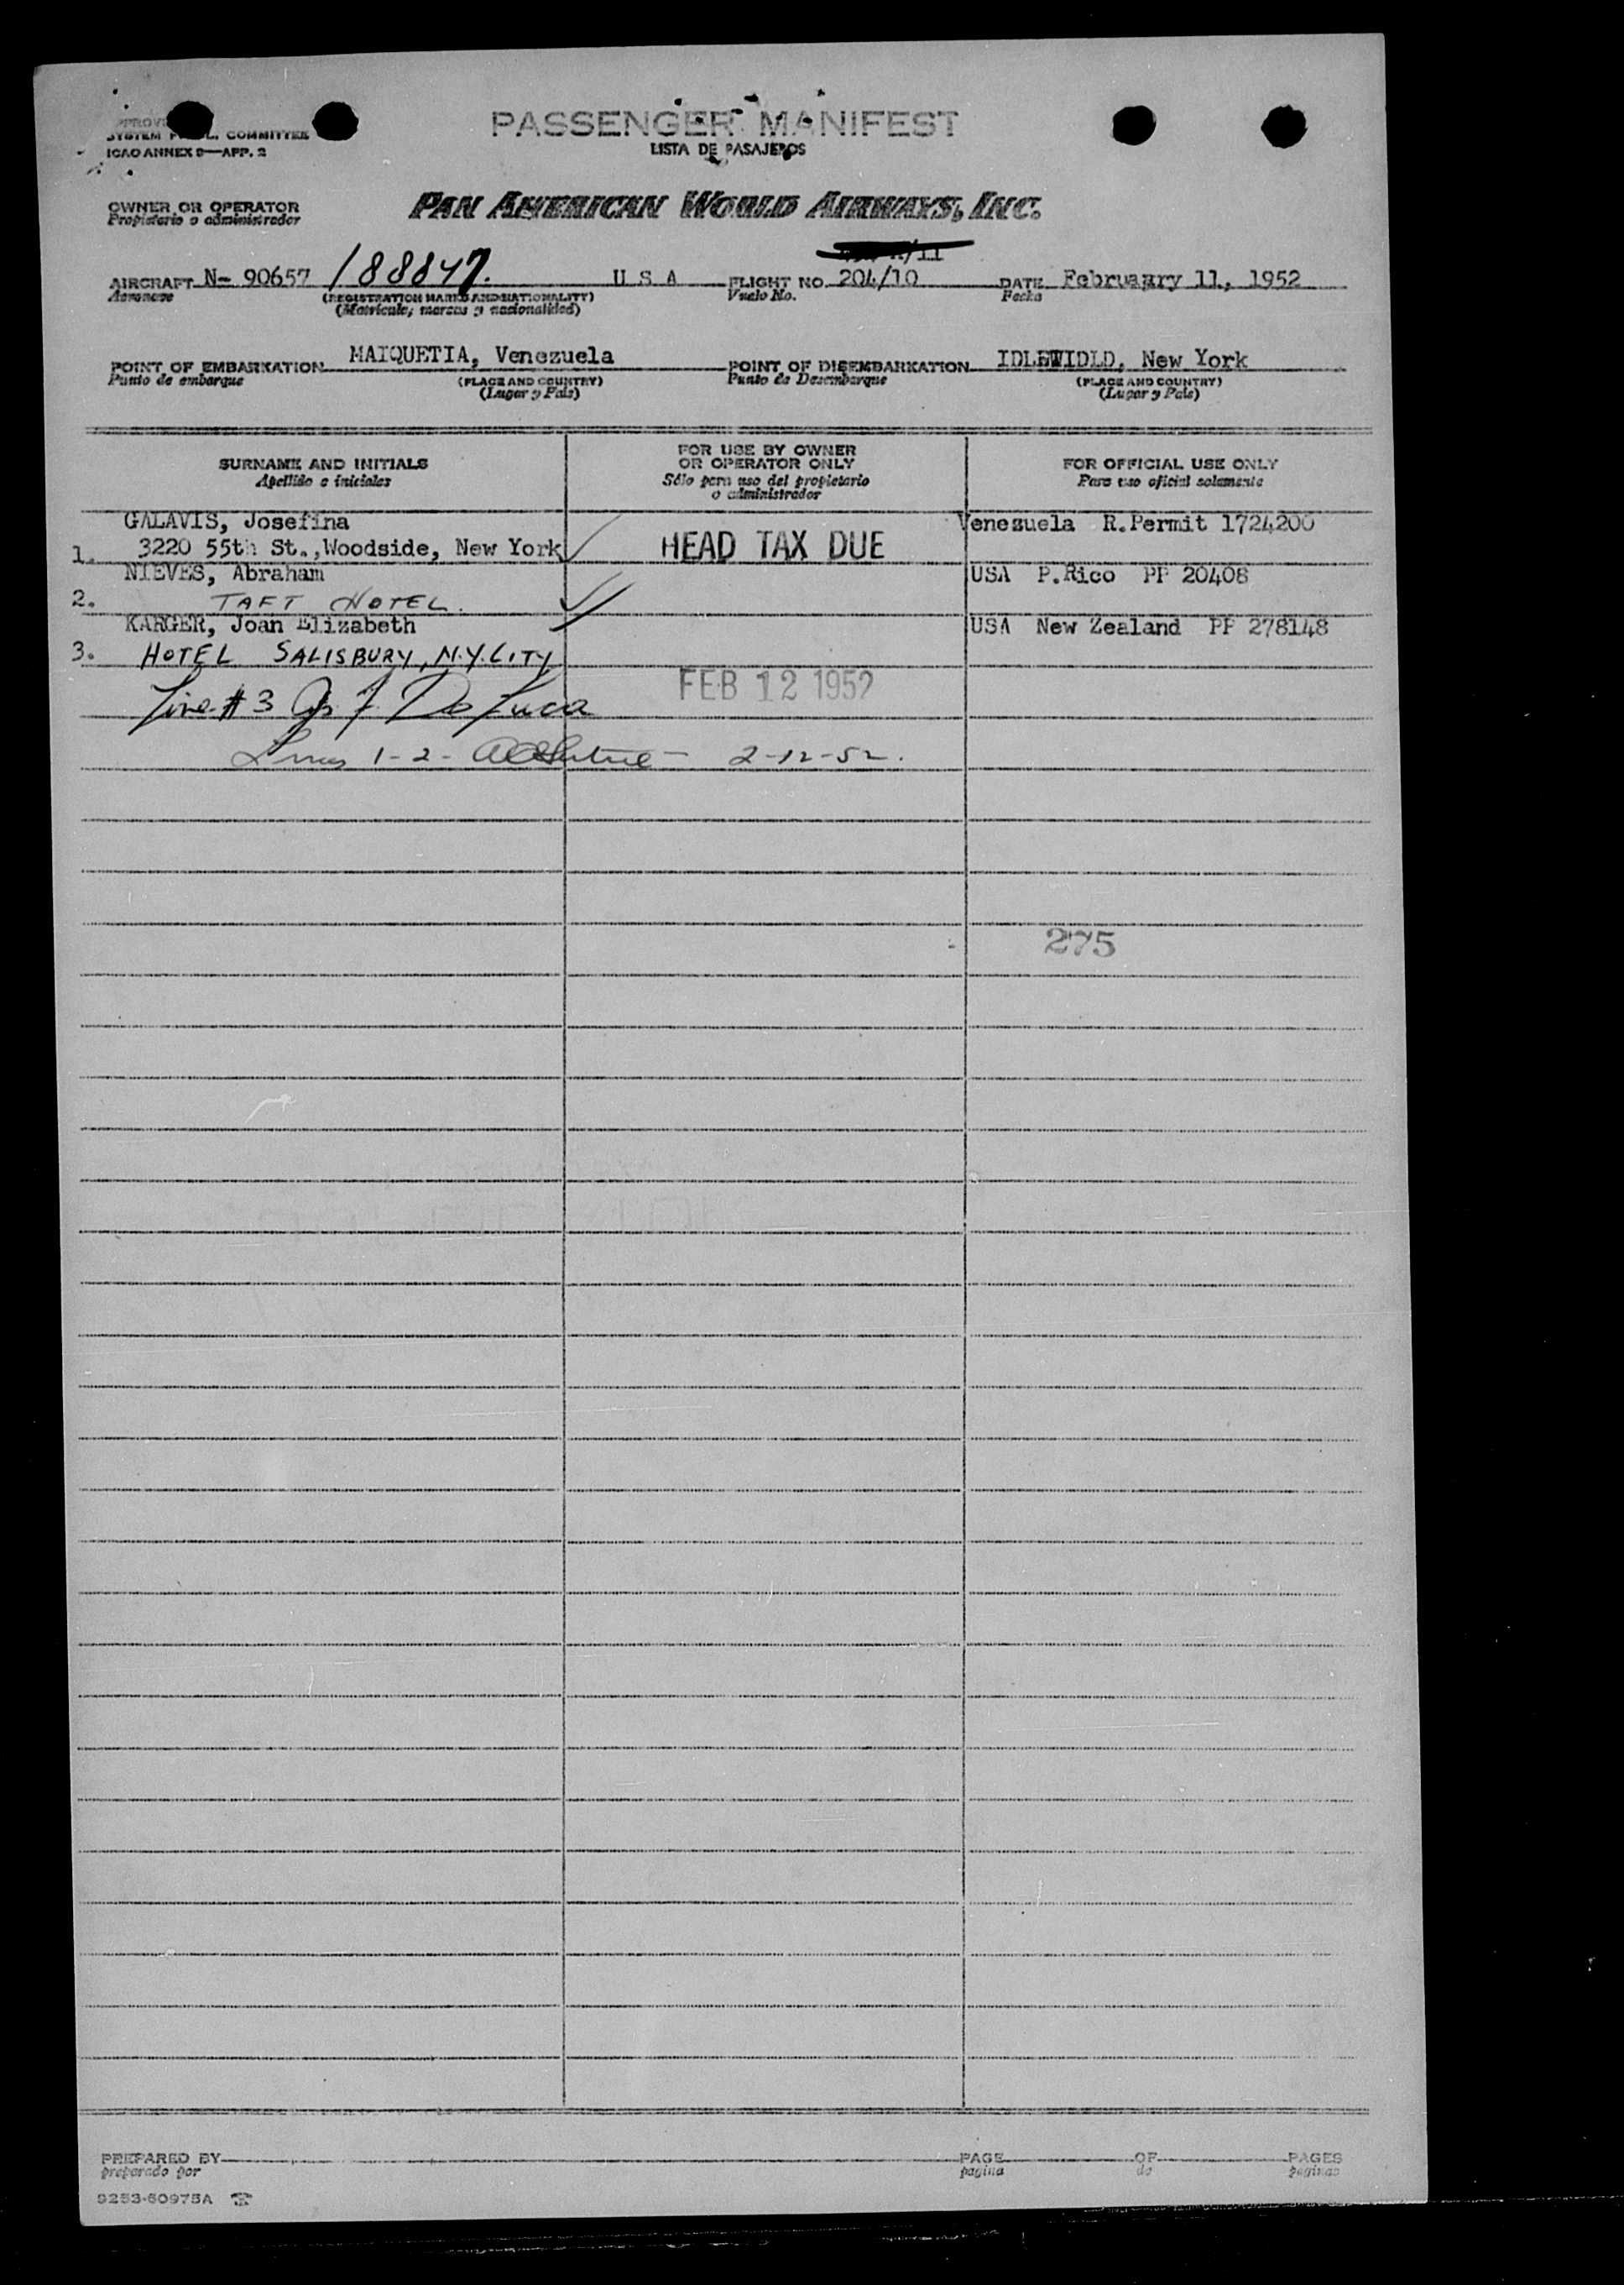 SYSTEM COMMITTEE
ICAO ANNEX 9—APP. 2
PASSENGER MANIFEST
LISTA DE PASAJEROS
OWNER OR OPERATOR
Propietario o administrador
PAN AMERICAN WORLD AIRWAYS, INC.
AIRCRAFT N- 90657 188847. U S A FLIGHT NO. 204/10 DATE Februaary 11, 1952
Aeronave (REGISTRATION MARKS AND NATIONALITY) Vuelo No. Fecha
(Matricula, marcas y nacionalidad)
POINT OF EMBARKATION MAIQUETIA, Venezuela POINT OF DISEMBARKATION IDLEWIDLD, New York
Punto de embarque (PLACE AND COUNTRY) Punto de Desembarque (PLACE AND COUNTRY)
(Lugar y Pais) (Lugar y Pais)
SURNAME AND INITIALS
Apellido e iniciales
FOR USE BY OWNER
OR OPERATOR ONLY
Sólo para uso del propietario
o administrador
FOR OFFICIAL USE ONLY
Para uso oficial solamente
GALAVIS, Josefina Venezuela R.Permit 1724200
1. 3220 55th St.,Woodside, New York HEAD TAX DUE
NIEVES, Abraham USA P.Rico PP 20408
2. TAFT HOTEL.
KARGER, Joan Elizabeth USA New Zealand PP 278148
3. HOTEL SALISBURY, N.Y. CITY
FEB 12 1952
Line #3 De Luca
Lines 1-2- 2-12-52.
275
PREPARED BY PAGE OF PAGES
preparado por pagina de paginas
9253-60975A